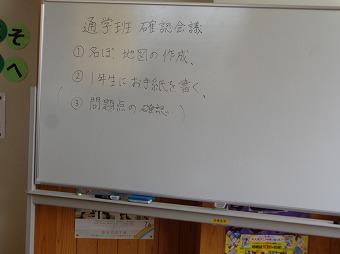 そ
へ
通学班 確認会議
① 名ぼ、地図の作成、
② 1年生にお手紙を書く、
(③ 問題点の確認 )